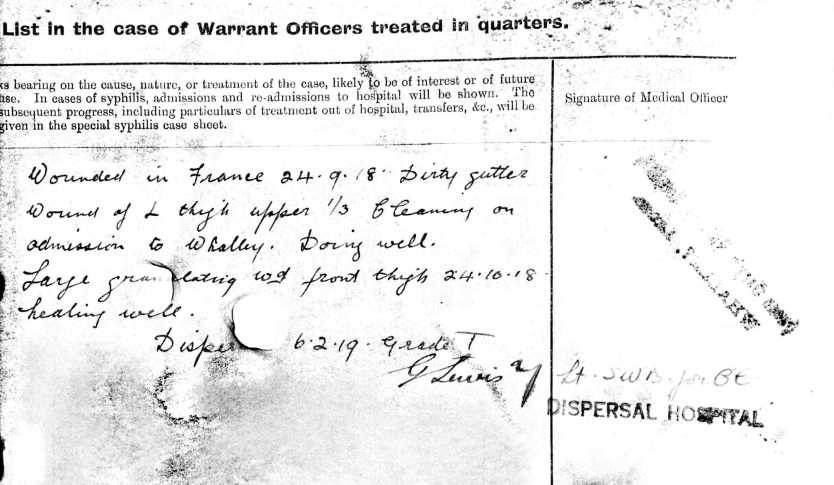 List in the case of Warrant Officers treated in quarters.
ks bearing on the cause, nature, or treatment of the case, likely to be of interest or of future
use. In cases of syphilis, admissions and re-admissions to hospital will be shown. The
subsequent progress, including particulars of treatment out of hospital, transfers, &c., will be
given in the special syphilis case sheet.
Signature of Medical Officer
Wounded in France 24.9.18 Dirty gutter
Wound of L thigh upper 1/3 Cleaning on
admission to Whalley. Doing well.
Large gran lating wd front thigh 24.10.18
healing well.
Disper 6.2.19. Grade I
G Lewis
Lt.
DISPERSAL HOSPITAL